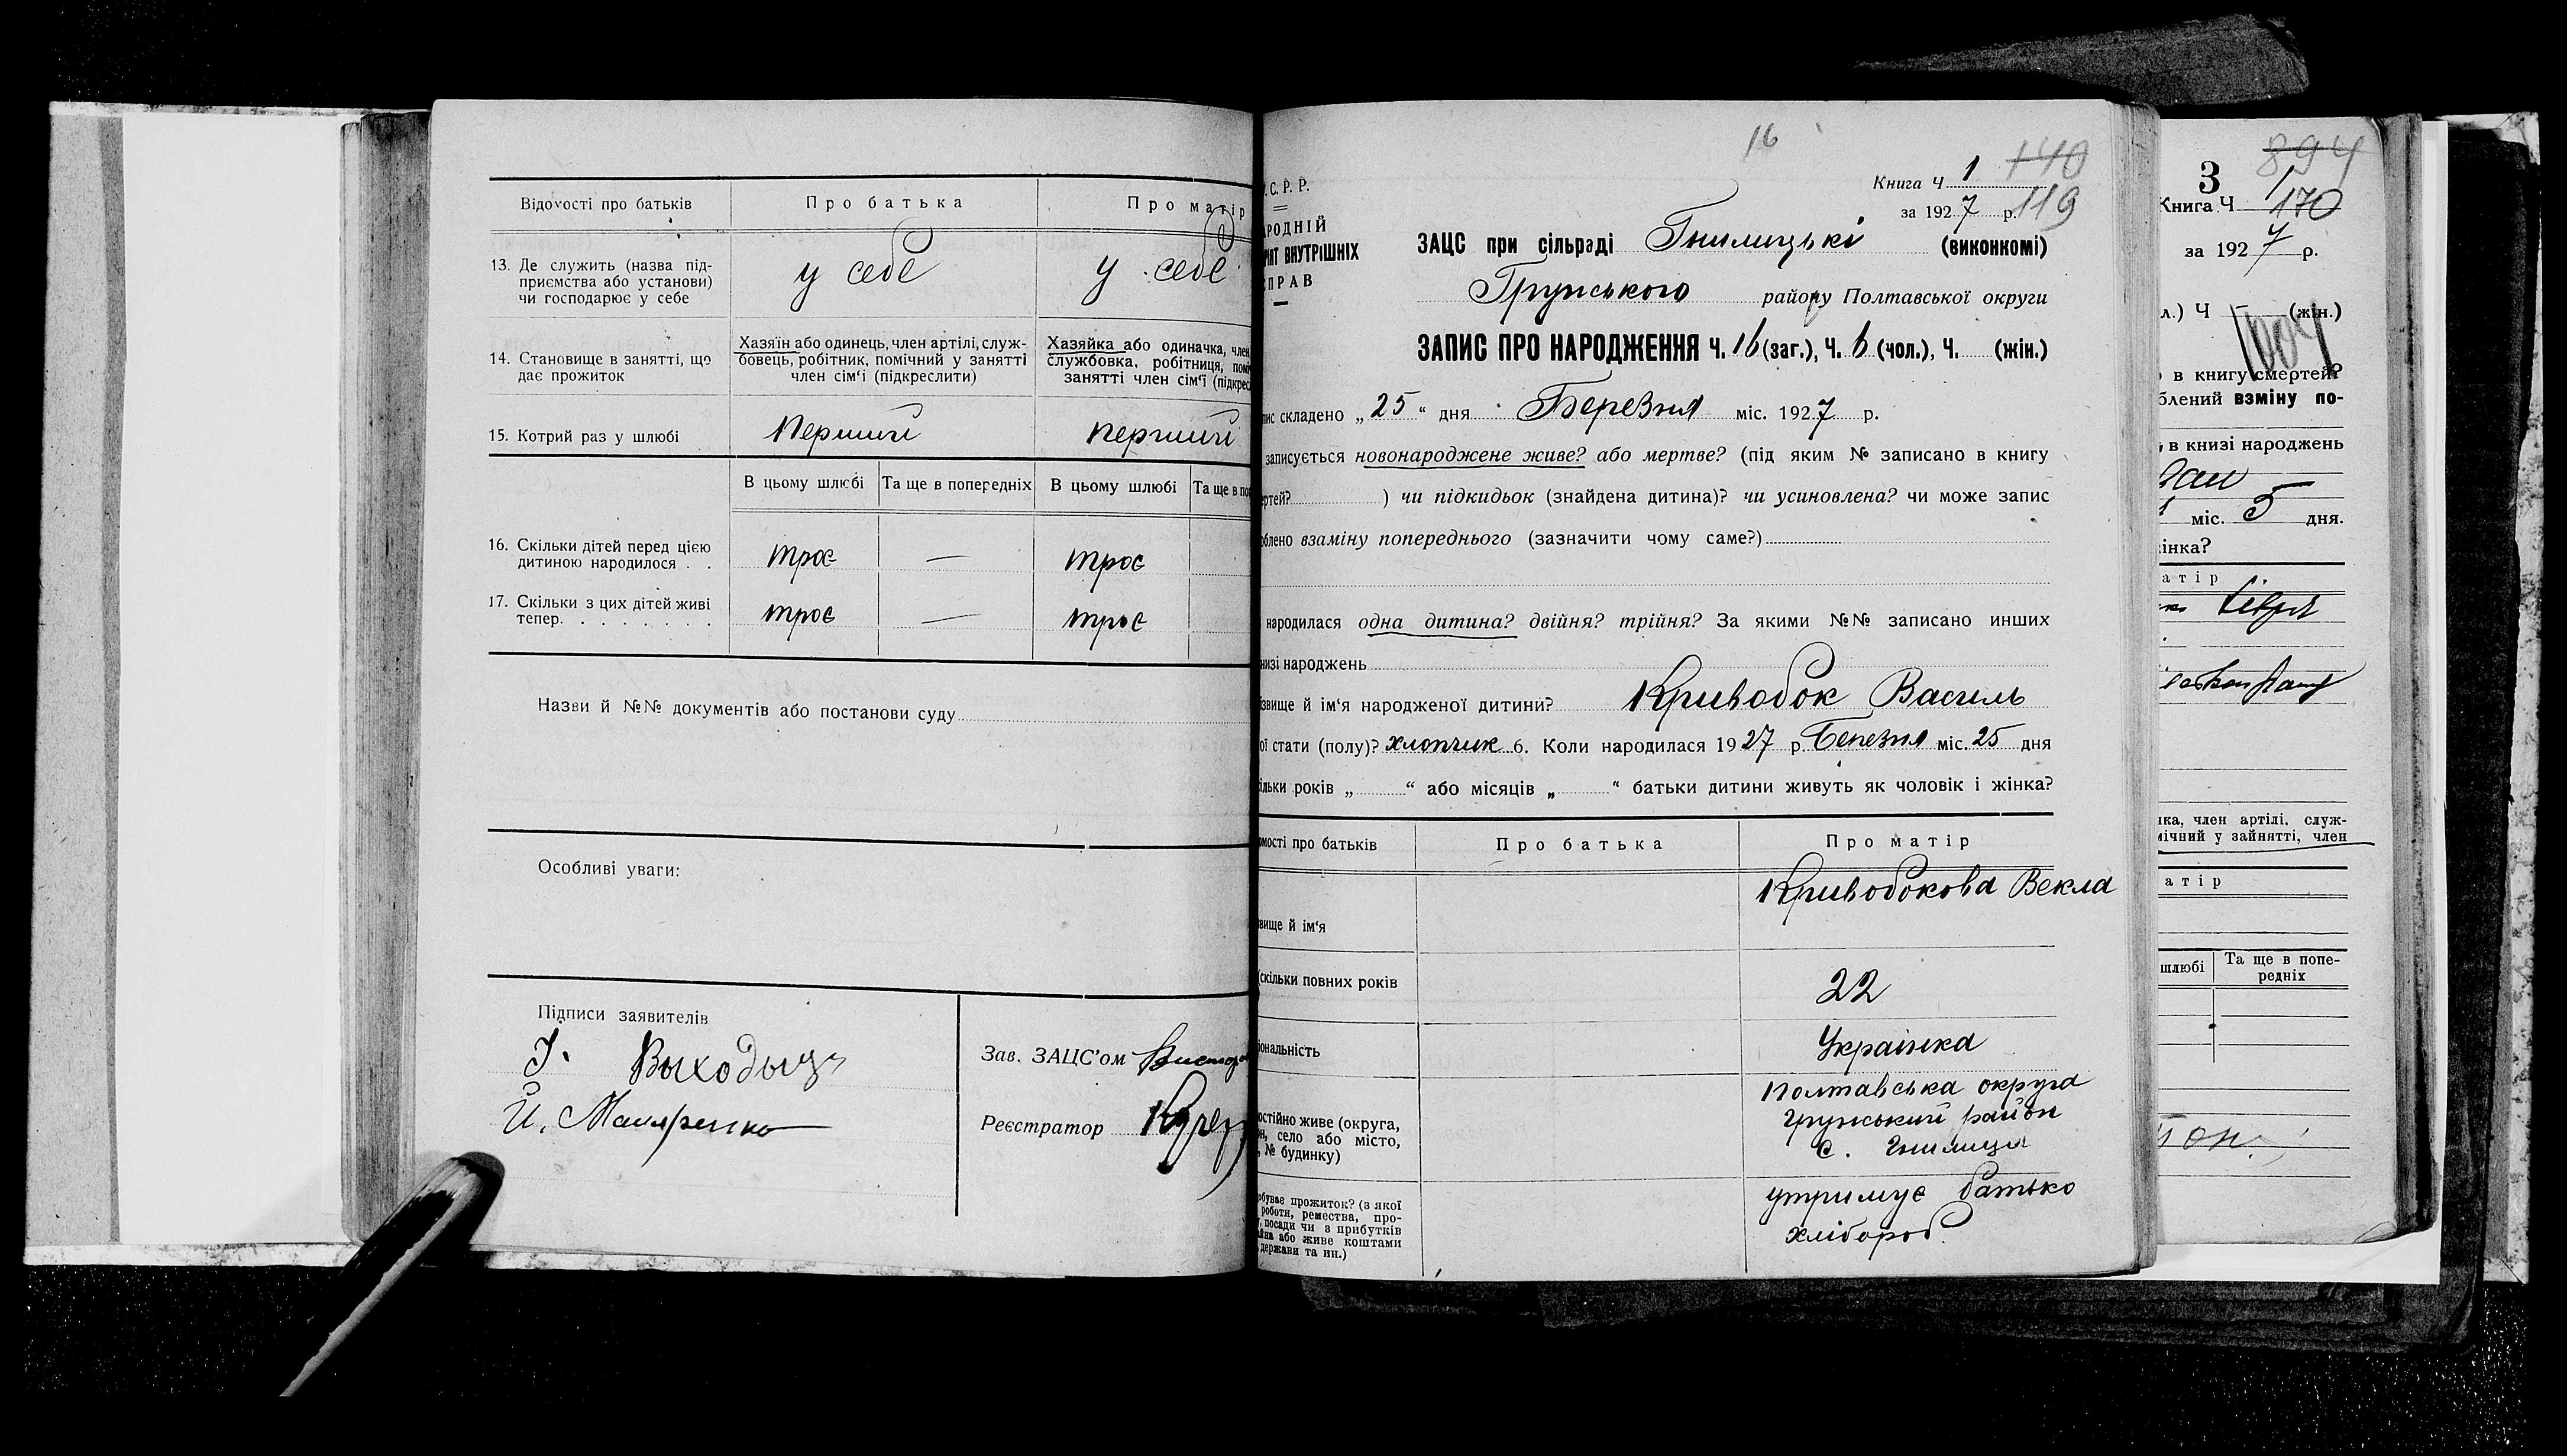 Відомості про батьків
Про батька
Про матір
13. Де служить (назва під-
приємства або установи)
чи господарює у себе
у себе
у себе
14. Становище в занятті, що
дає прожиток
Хазяїн або одинець, член артілі, служ-
бовець, робітник, помічний у занятті
член сім'ї (підкреслити)
Хазяйка або одиначка, член
службовка, робітниця, помі
занятті член сім'ї (підкрес
15. Котрий раз у шлюбі
Перший
перший
В цьому шлюбі
Та ще в попередніх
В цьому шлюбі
Та ще в по
16. Скільки дітей перед цією
дитиною народилося . .
троє
—
троє
17. Скільки з цих дітей живі
тепер. . . . . . . .
троє
—
троє
Назви й №№ документів або постанови суду
Особливі уваги:
Підписи заявителів
Зав. ЗАЦС'ом
Реєстратор
16
С. Р. Р.
РОДНІЙ
ВНУТРІШНІХ
ПРАВ
Книга Ч 1
140
за 1927 р.
119
ЗАЦС при сільраді Гнилицькі (виконкомі)
Грунського району Полтавської округи
ЗАПИС ПРО НАРОДЖЕННЯ Ч. 16 (заг.), Ч. 6 (чол.), Ч. (жін.)
пис складено „25“ дня Березня міс. 1927 р.
записується новонароджене живе? або мертве? (під яким № записано в книгу
ртей? ) чи підкидьок (знайдена дитина)? чи усиновлена? чи може запис
облено взаміну попереднього (зазначити чому саме?)
народилася одна дитина? двійня? трійня? За якими №№ записано инших
низі народжень
звище й ім'я народженої дитини? Кривобок Василь
ої стати (полу)? хлопчик 6. Коли народилася 1927 р. Березня міс. 25 дня
ільки років „ “ або місяців „ “ батьки дитини живуть як чоловік і жінка?
омості про батьків
Про батька
Про матір
вище й ім'я
Кривобокова Векла
(скільки повних років
22
іональність
Українка
остійно живе (округа,
н, село або місто,
, № будинку)
Полтавська округа
Грунський район
с. Гнилиця
обуває прожиток? (з якої
роботи, ремества, про-
, посади чи з прибутків
айна або живе коштами
держави та ин.)
утримує батько
хлібороб.
3
894
Книга Ч 1
170
за 1927 р.
л.) Ч — (жін.)
в книгу смертей?
блений взміну по-
, в книзі народжень
міс. 5 дня.
інка?
атір
ка, член артілі, служ-
мічний у зайнятті, член
атір
шлюбі
Та ще в попе-
редніх